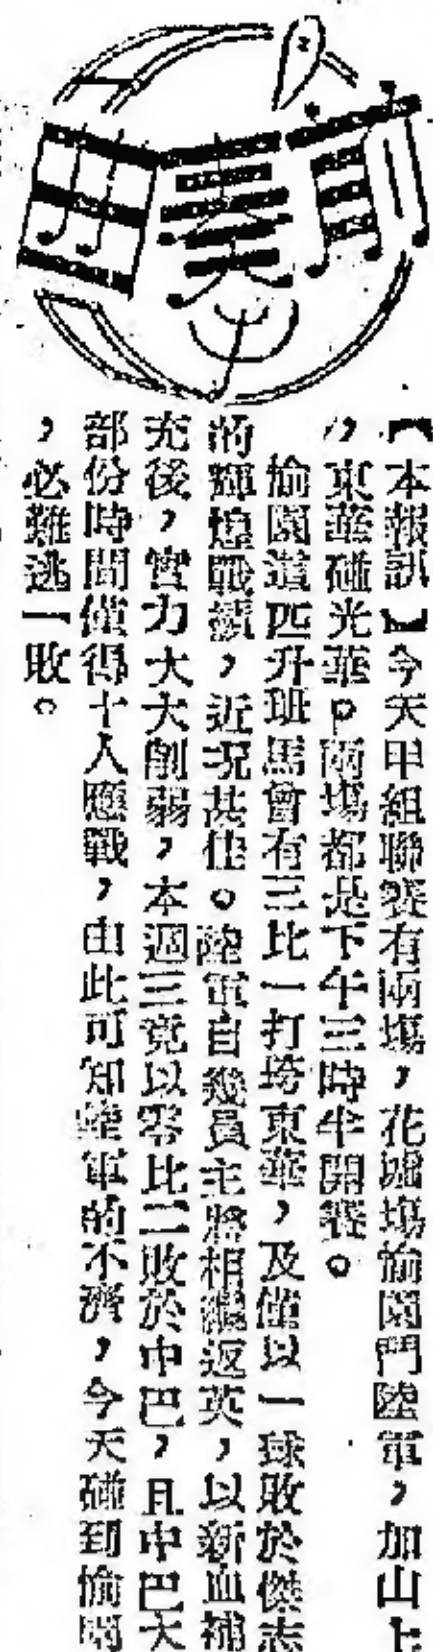 前奏曲
【本報訊】今天甲組聯賽有兩場，花墟場愉園鬥陸軍，加山上
，東華碰光華。兩場都是下午三時半開賽。
愉園這匹升班馬會有三比一打垮東華，及僅以一球敗於傑志
的輝煌戰績，近況甚佳。陸軍自幾員主將相繼返英，以新血補
充後，實力大大削弱，本週三竟以零比二敗於中巴，且中巴大
部份時間僅得十人應戰，由此可知陸軍的不濟，今天碰到愉園
，必難逃一敗。